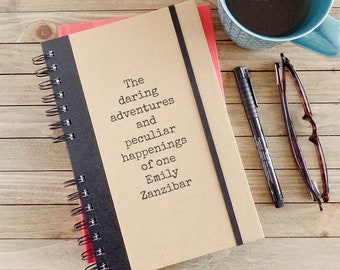 The
daring
adventures
and
peculiar
happenings
of one
Emily
Zanzibar